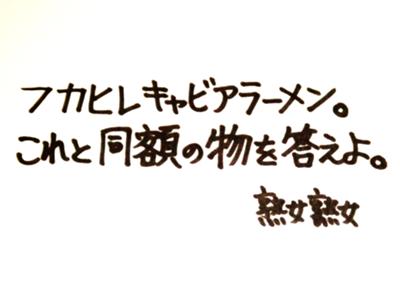 フカヒレキャビアラーメン。
これと同額の物を答えよ。
熟女熟女